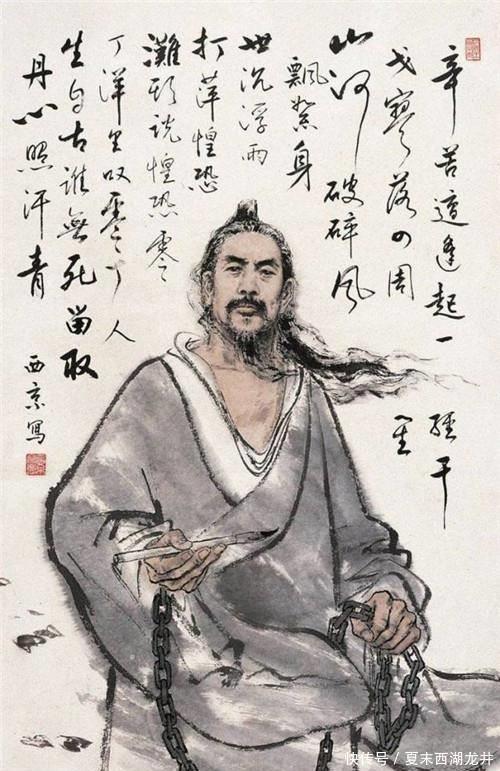 辛苦遭逢起一經干
戈寥落四周星
山河破碎风
飘絮身
世沉浮雨
打萍惶恐
灘頭说惶恐零
丁洋里叹零丁人
生自古谁無死留取
丹心照汗青
西京寫
快传号／夏末西湖龙井